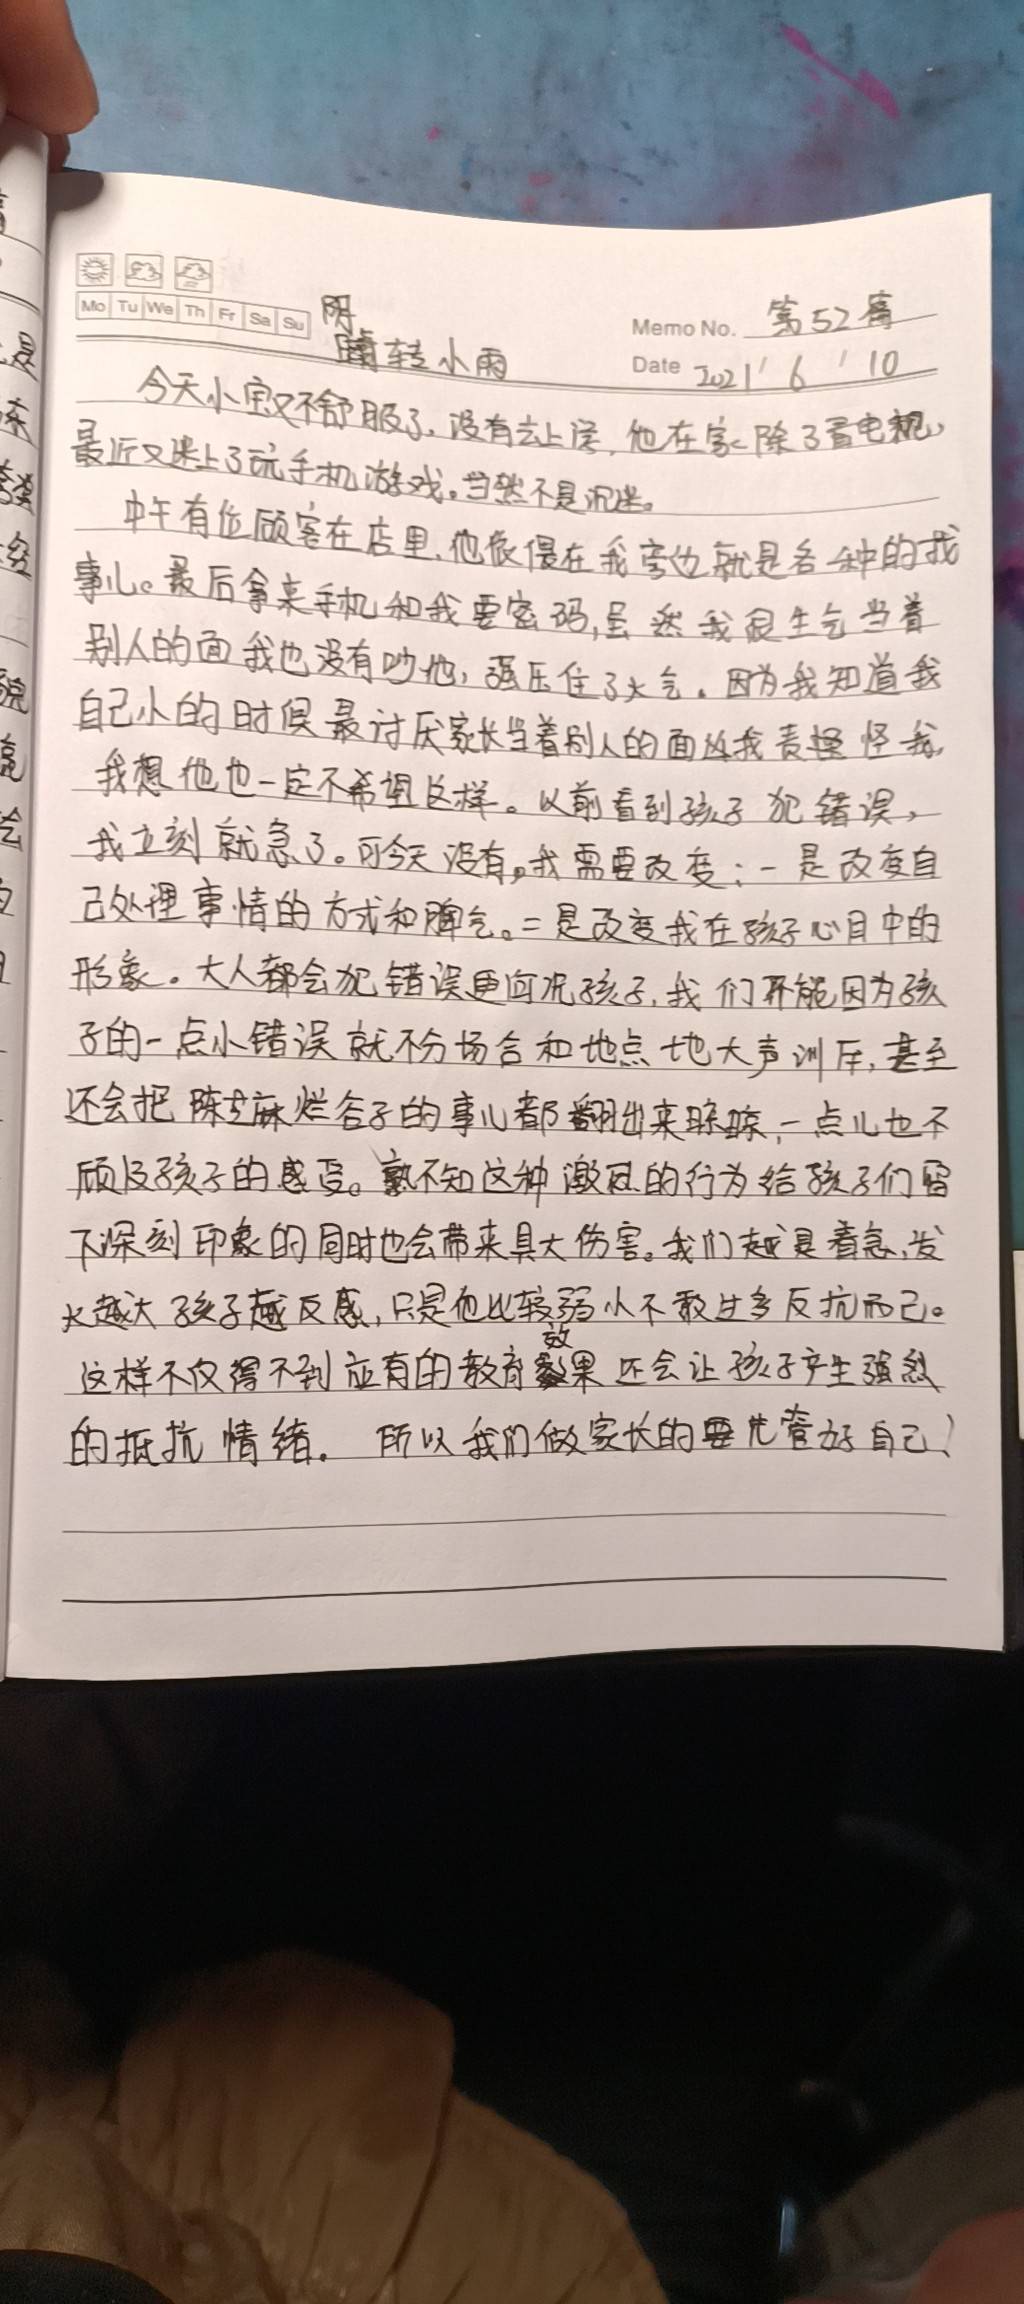 Mo Tu We Th Fr Sa Su
Memo No. 第52篇
阴
晴转小雨
Date 2021 / 6 / 10
今天小宝又不舒服了,没有去上学,他在家除了看电视,
最近又迷上了玩手机游戏。当然不是沉迷。
中午有位顾客在店里,他依偎在我旁边就是各种的找
事儿。最后拿来手机和我要密码,虽然我很生气当着
别人的面我也没有吵他,强压住了火气。因为我知道我
自己小的时侯最讨厌家长当着别人的面么我责怪怪我,
我想他也一定不希望这样。以前看到孩子犯错误,
我立刻就急了。可今天没有。我需要改变:一是改变自
己处理事情的方式和脾气。二是改变我在孩子心目中的
形象。大人都会犯错误更何况孩子,我们不能因为孩
子的一点小错误就不分场合和地点地大声训斥,甚至
还会把陈芝麻烂谷子的事儿都翻出来晾晾,一点儿也不
顾及孩子的感受。孰不知这种激烈的行为给孩子们留
下深刻印象的同时也会带来具大伤害。我们越是着急,发
火越大孩子越反感,只是他比较弱小不敢过多反抗而已。
这样不仅得不到应有的教育效果还会让孩子产生强烈
的抵抗情绪。所以我们做家长的要先管好自己!